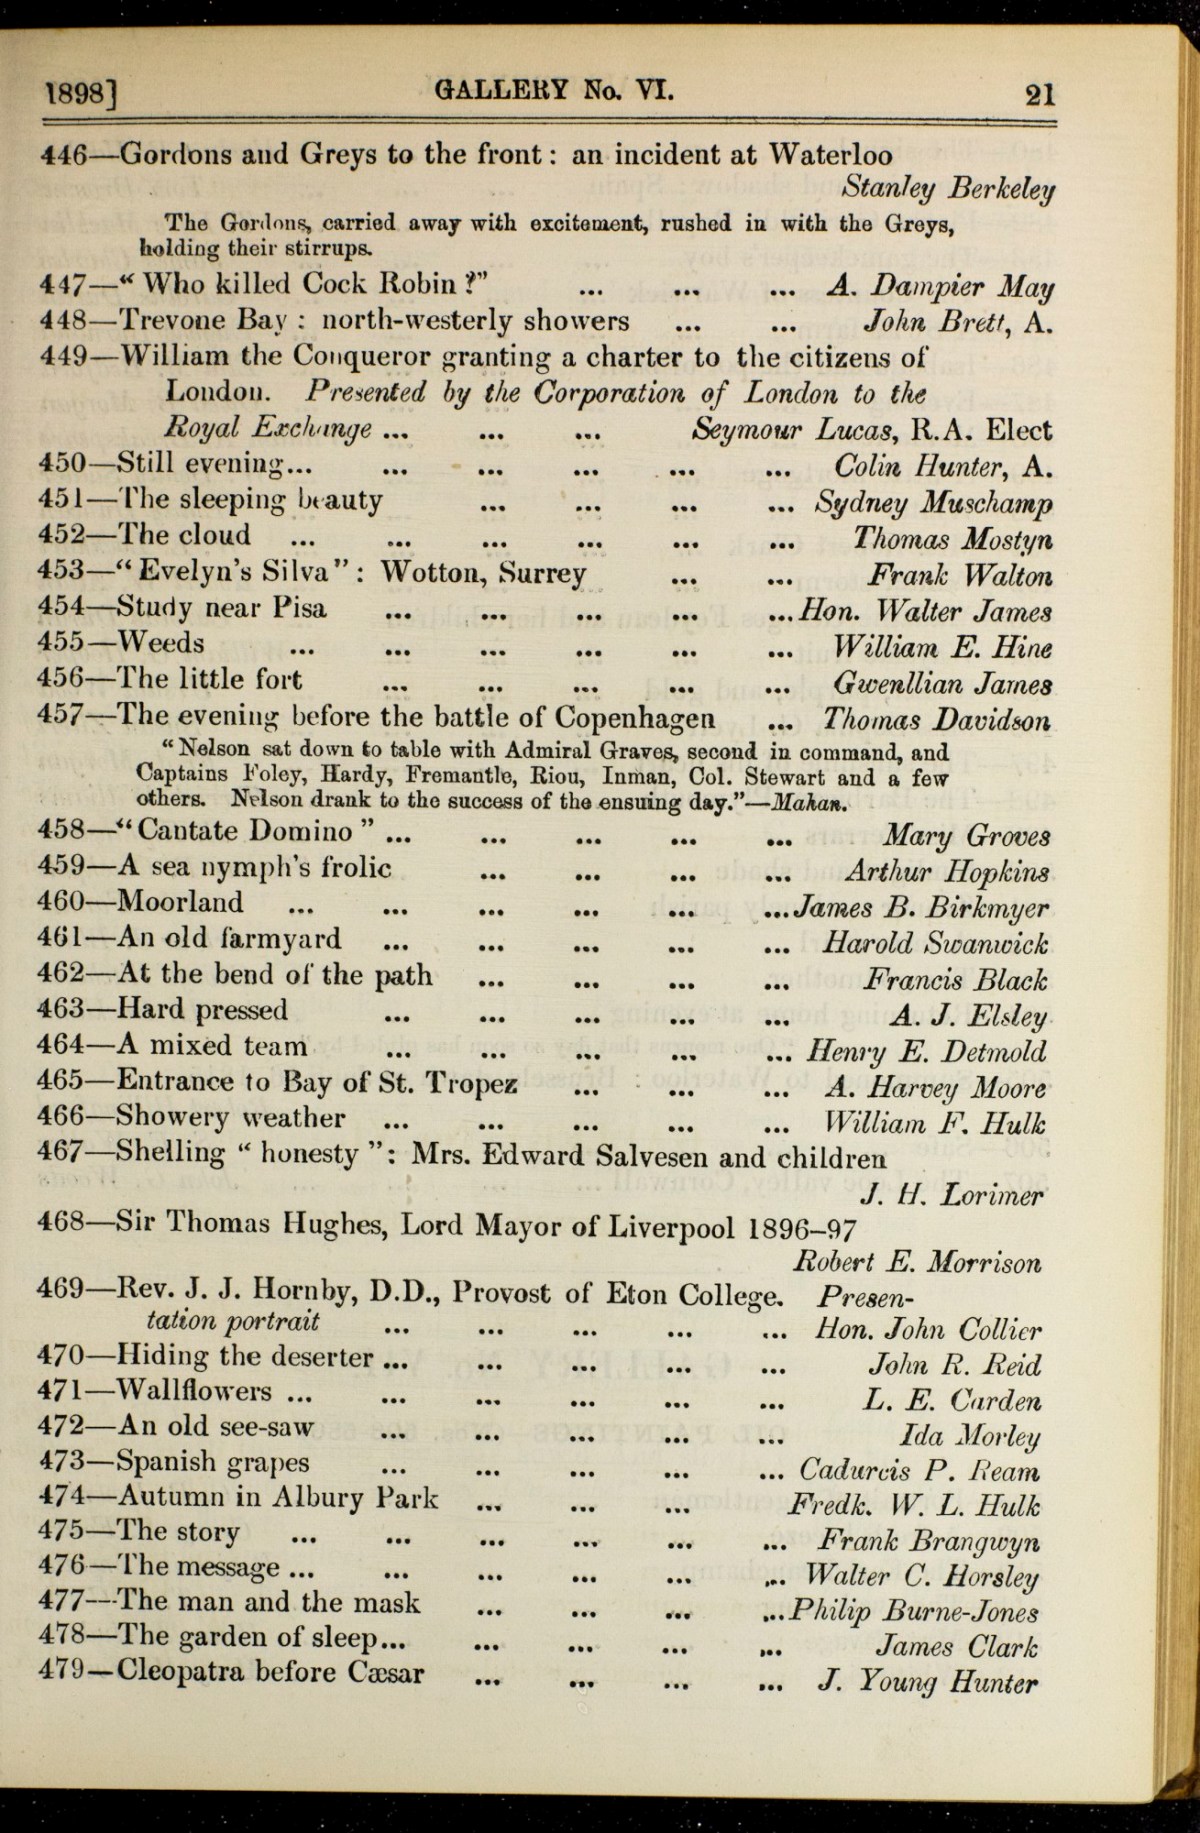 1898] GALLERY No. VI. 21
446—Gordons and Greys to the front: an incident at Waterloo
Stanley Berkeley
The Gordons, carried away with excitement, rushed in with the Greys,
holding their stirrups.
447—“Who killed Cock Robin?” ... ... ... A. Dampier May
448—Trevone Bay: north-westerly showers ... ... John Brett, A.
449—William the Conqueror granting a charter to the citizens of
London. Presented by the Corporation of London to the
Royal Exchange ... ... ... Seymour Lucas, R.A. Elect
450—Still evening... ... ... ... ... ... Colin Hunter, A.
451—The sleeping beauty ... ... ... ... Sydney Muschamp
452—The cloud ... ... ... ... ... ... Thomas Mostyn
453—“Evelyn’s Silva”: Wotton, Surrey ... ... Frank Walton
454—Study near Pisa ... ... ... ... ... Hon. Walter James
455—Weeds ... ... ... ... ... ... William E. Hine
456—The little fort ... ... ... ... ... Gwenllian James
457—The evening before the battle of Copenhagen ... Thomas Davidson
“Nelson sat down to table with Admiral Graves, second in command, and
Captains Foley, Hardy, Fremantle, Riou, Inman, Col. Stewart and a few
others. Nelson drank to the success of the ensuing day.”—Mahan.
458—“Cantate Domino” ... ... ... ... ... Mary Groves
459—A sea nymph’s frolic ... ... ... ... Arthur Hopkins
460—Moorland ... ... ... ... ... ... James B. Birkmyer
461—An old farmyard ... ... ... ... ... Harold Swanwick
462—At the bend of the path ... ... ... ... Francis Black
463—Hard pressed ... ... ... ... ... A. J. Elsley
464—A mixed team ... ... ... ... ... Henry E. Detmold
465—Entrance to Bay of St. Tropez ... ... ... A. Harvey Moore
466—Showery weather ... ... ... ... ... William F. Hulk
467—Shelling “honesty”: Mrs. Edward Salvesen and children
J. H. Lorimer
468—Sir Thomas Hughes, Lord Mayor of Liverpool 1896–97
Robert E. Morrison
469—Rev. J. J. Hornby, D.D., Provost of Eton College. Presen-
tation portrait ... ... ... ... ... Hon. John Collier
470—Hiding the deserter ... ... ... ... ... John R. Reid
471—Wallflowers ... ... ... ... ... ... L. E. Carden
472—An old see-saw ... ... ... ... ... Ida Morley
473—Spanish grapes ... ... ... ... ... Cadurcis P. Ream
474—Autumn in Albury Park ... ... ... Fredk. W. L. Hulk
475—The story ... ... ... ... ... ... Frank Brangwyn
476—The message ... ... ... ... ... ... Walter C. Horsley
477—The man and the mask ... ... ... ... Philip Burne-Jones
478—The garden of sleep... ... ... ... ... James Clark
479—Cleopatra before Cæsar ... ... ... ... J. Young Hunter